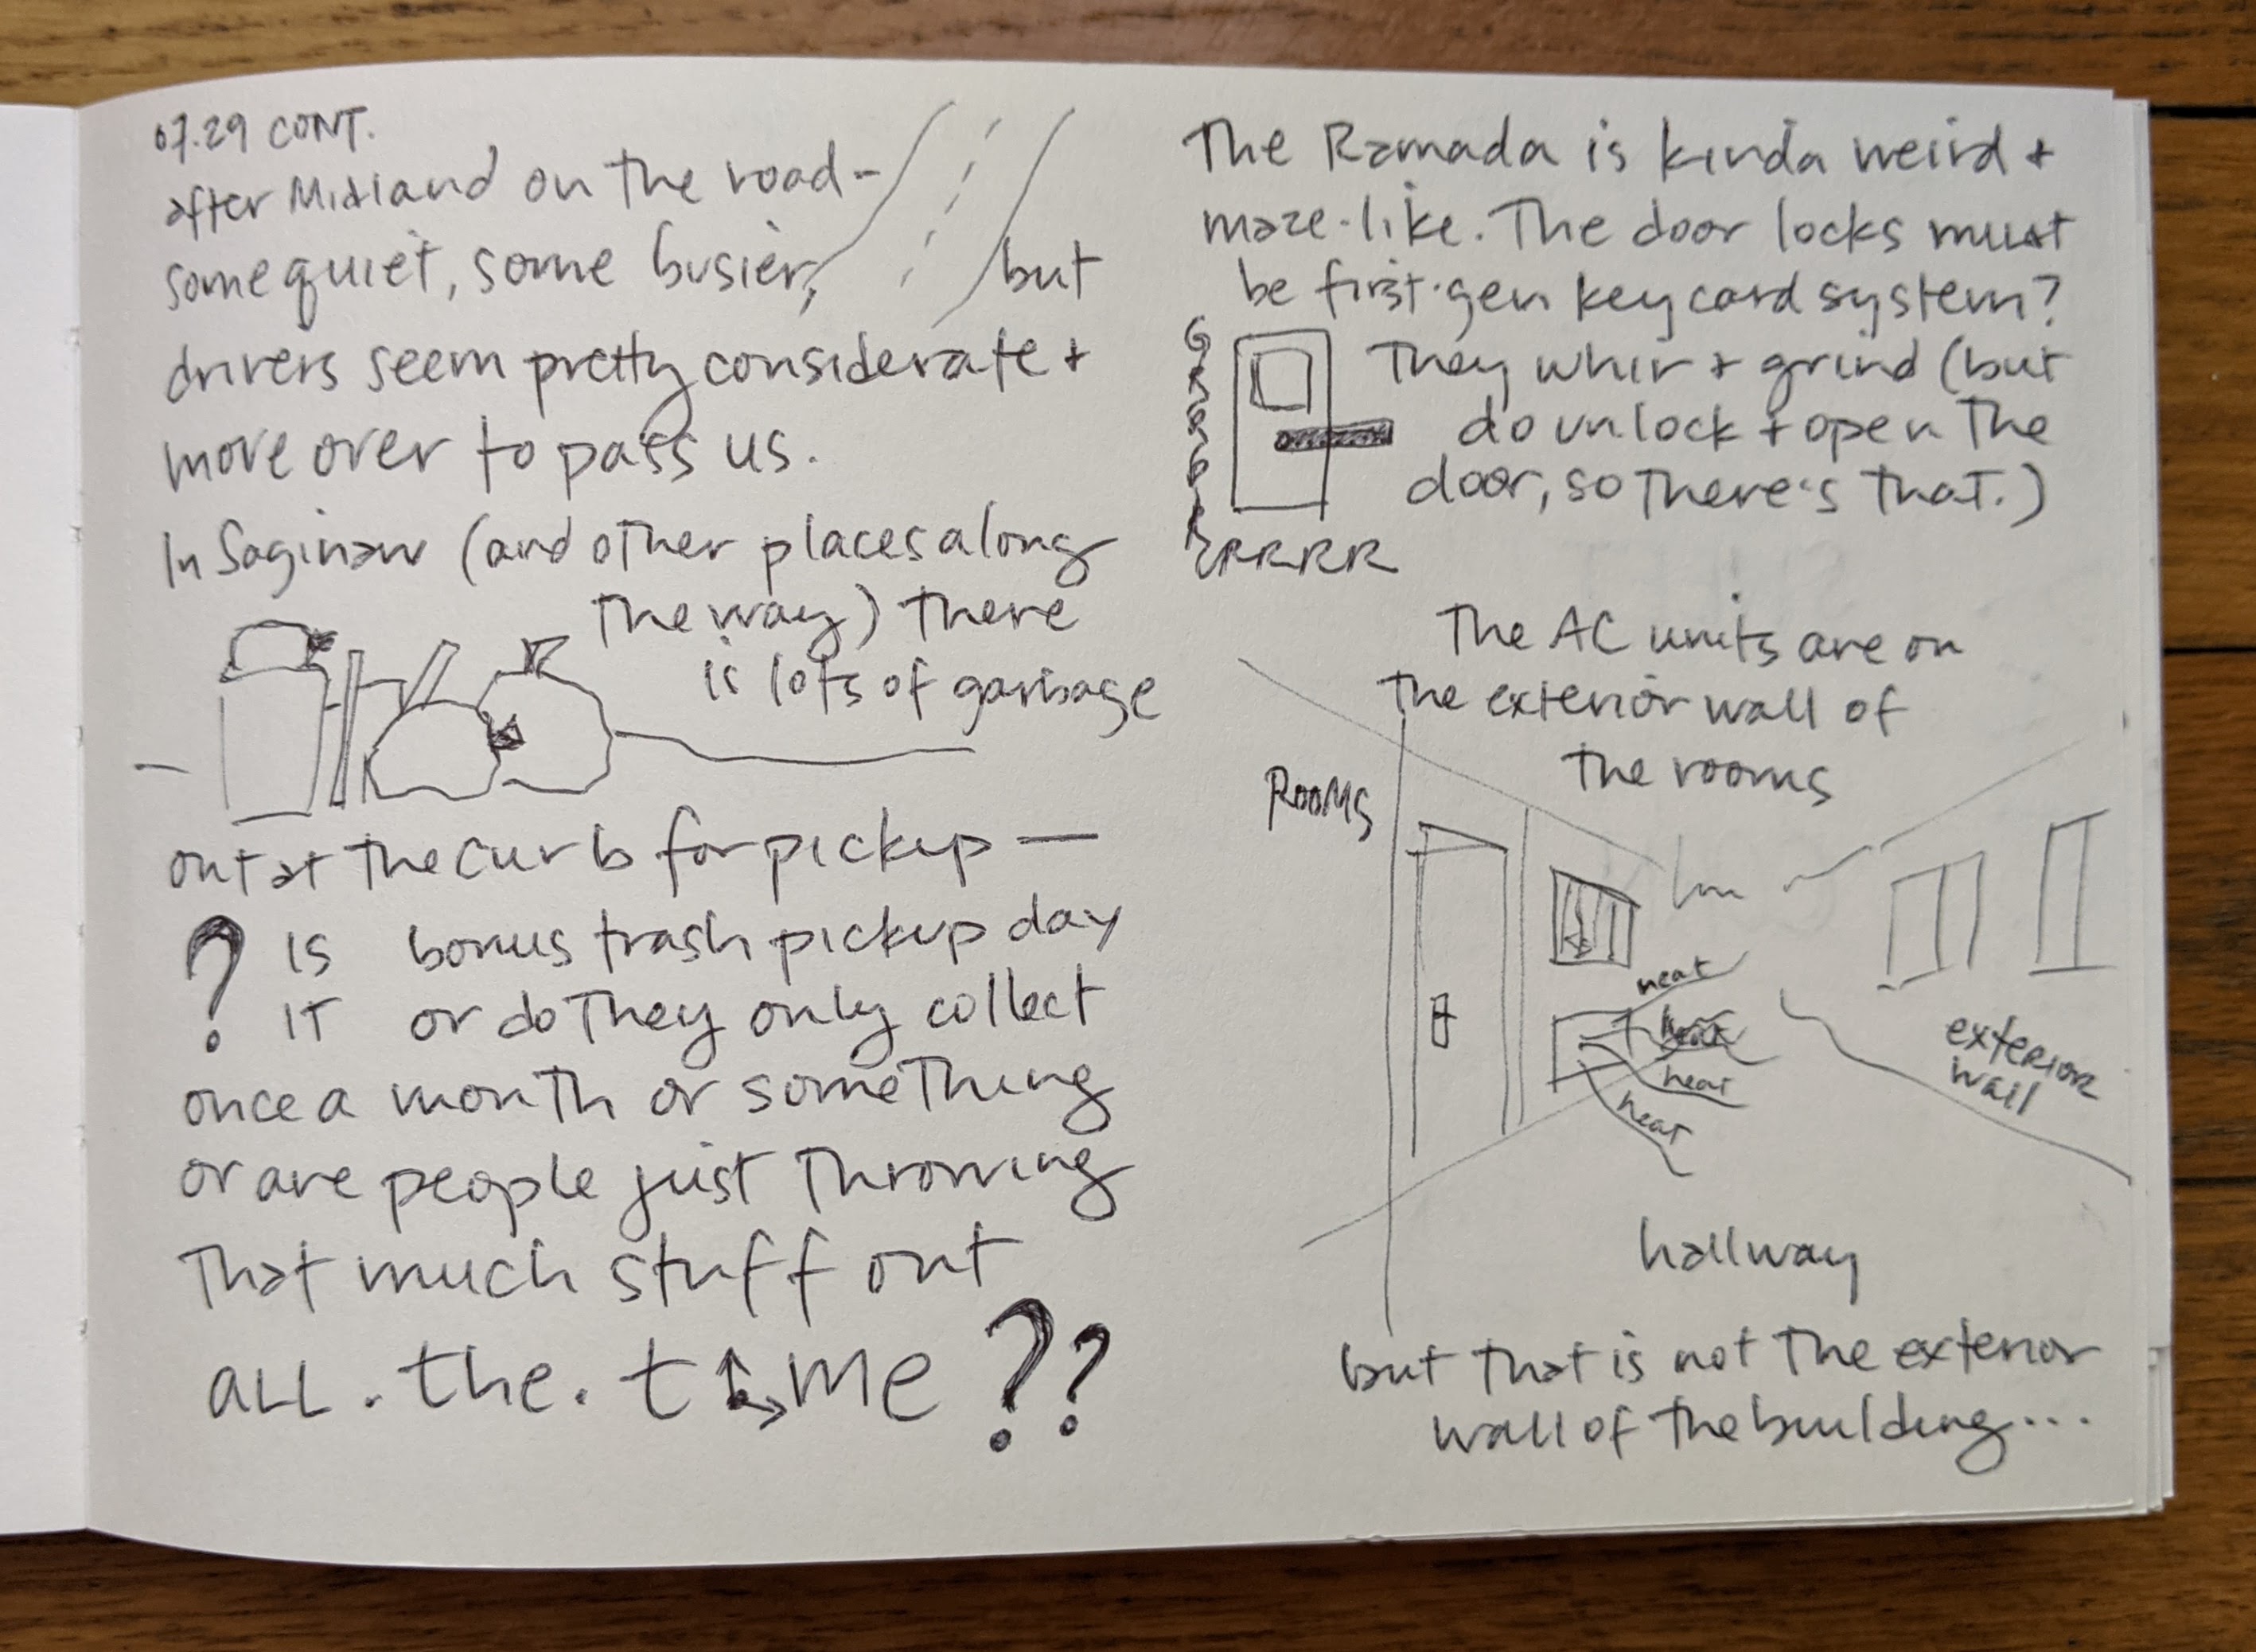 07.29 CONT.
after Midland on the road -
some quiet, some busier, but
drivers seem pretty considerate +
move over to pass us.
In Saginaw (and other places along
the way) there
is lots of garbage
out at the curb for pickup —
? IS bonus trash pickup day
IT or do they only collect
once a month or something
or are people just throwing
that much stuff out
ALL. the. time ??
The Ramada is kinda weird +
maze-like. The door locks must
be first-gen key card system?
They whir + grind (but
do unlock + open the
door, so there's that.)
RRRR
The AC units are on
the exterior wall of
the rooms
ROOMS
heat
heat
heat
exterior
wall
hallway
but that is not the exterior
wall of the building...